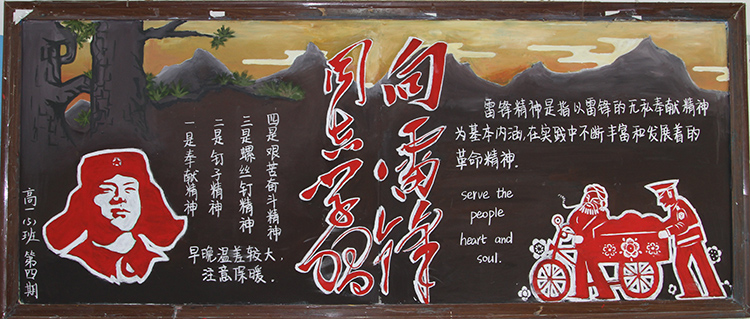 向雷锋
同志学习
一是奉献精神
二是钉子精神
三是螺丝钉精神
四是艰苦奋斗精神
早晚温差较大,
注意保暖.
高一(5)班 第四期
雷锋精神是指以雷锋的无私奉献精神
为基本内涵,在实践中不断丰富和发展着的
革命精神.
serve the
people
heart and
soul.